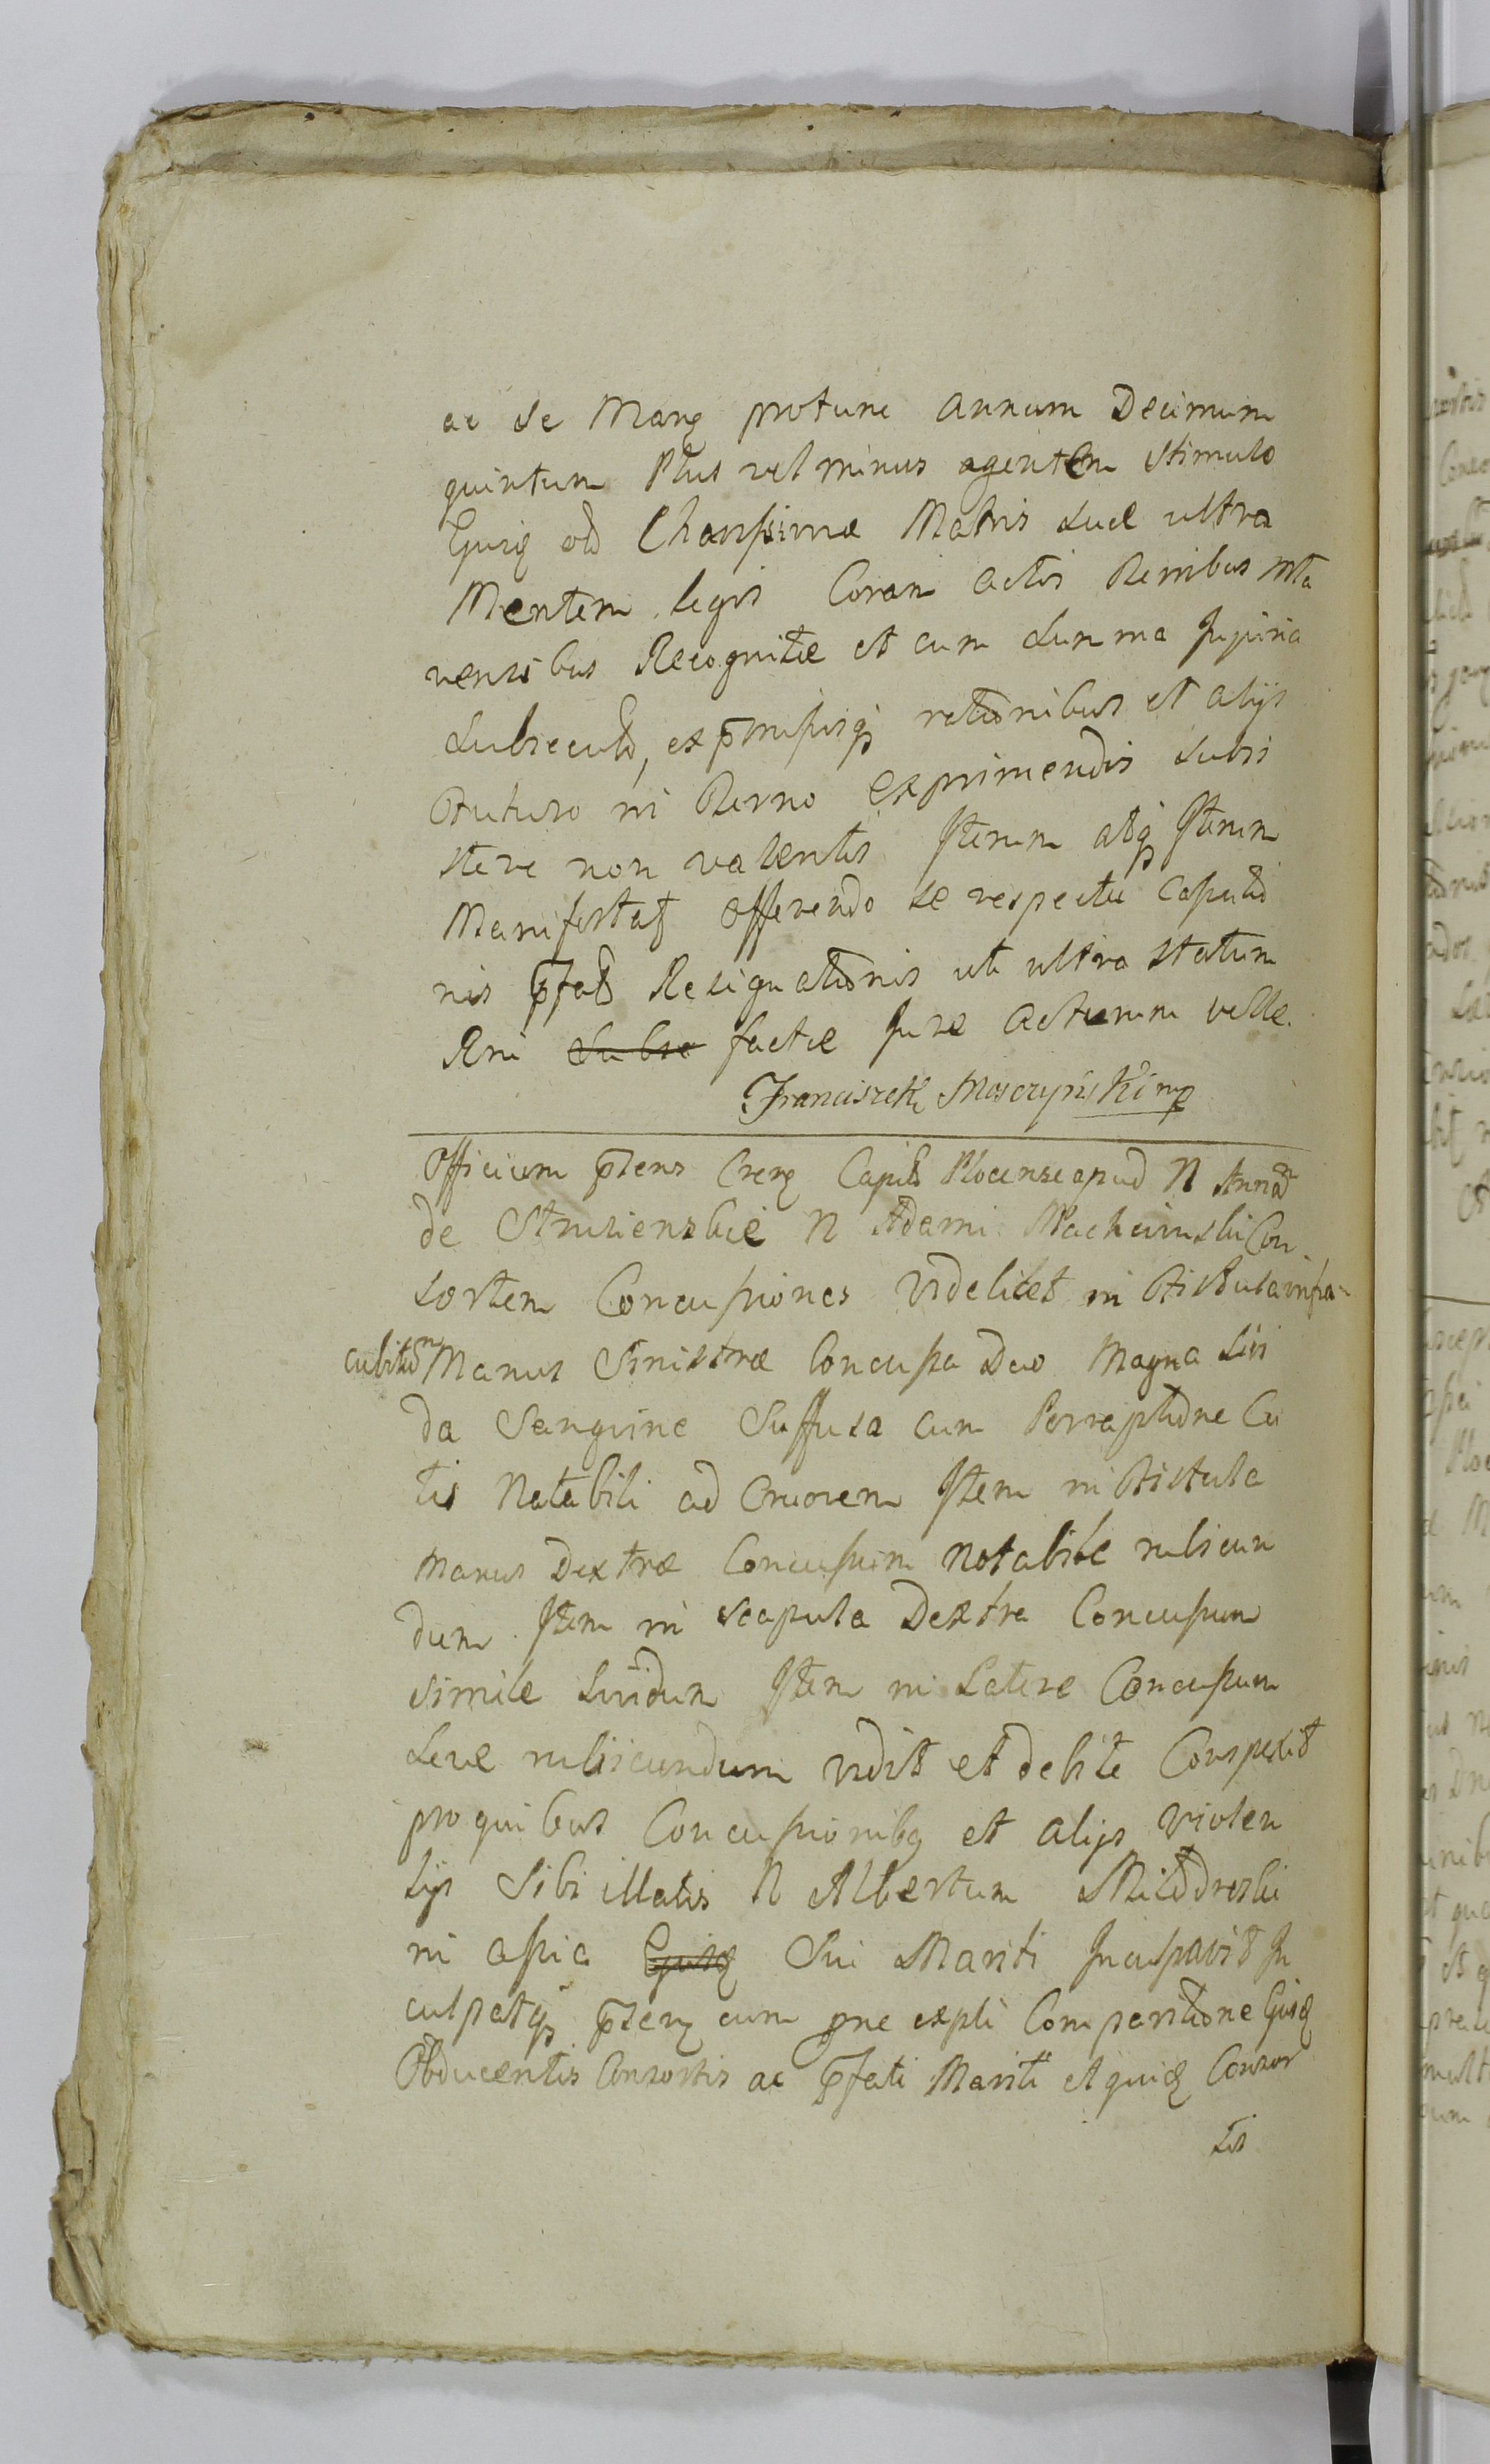 ac se Mang protunc annum Decimum
quintum Plus vel minus agentem stimulo
Ejusq ad Charissimæ Matris suæ ultra
Mentem legis Coram actis
vensibus Recognitæ et cum summa Injuria
Subsecuta, ex pmissisq rationibus et alijs
futuro in exprimendis subsi
stere non valentis Iterum atq Iterum
Manifestat offerendo se respectu
nis pfatæ Resignationis uti ultra statum
Rni Subse factæ Jure acturum velle.
Franciszek Moszczyński mp
Officium psens Crense Capit Plocense apud N Annam
de N Adami Con
sortem Concussiones videlicet in fistula infra
cubitum Manus Sinistræ Concussa Duo Magna Livi
da Sanguine Suffusa cum Perruptione Cu
tis Notabili ad Cruorem Item in fistula
Manus Dextræ Concussum Notabile rubicun
dum Item in scapula Dextra Concussum
simile Lividum Item in Latere Concussum
Leve rubicundum vidit et debite Conspexit
pro quibus Concussionibq et alijs violen
tijs Sibi illatis N Albertum
in assia Ejusq Sui Mariti Inculpavit In
culpatq pserq cum pne expli Comparitione Ejusd
Obducentis Consortis ac pfati Mariti ejusd Consor
tis